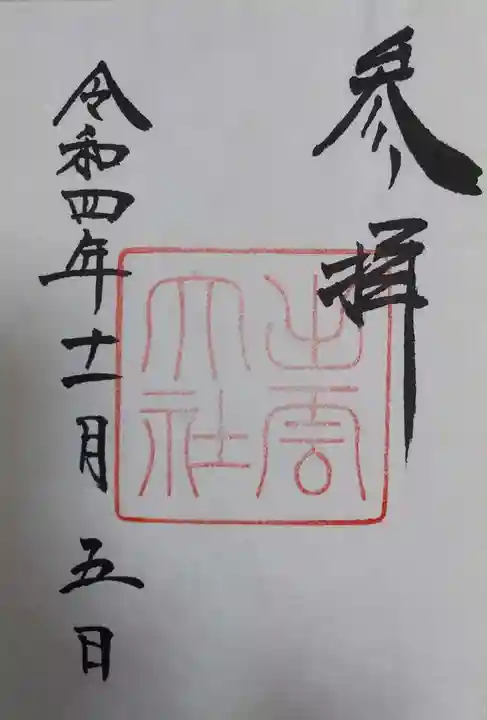 参拝
出雲
大社
令和四年十一月五日